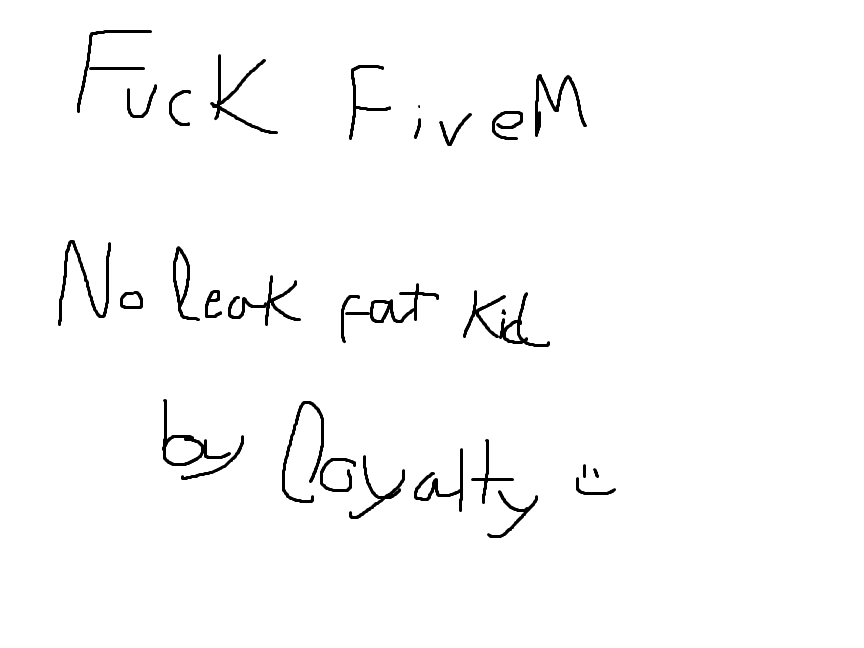 Fuck FiveM
No leak fat kid
by Loyalty :)